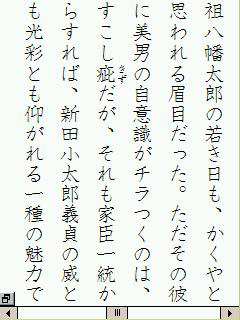 祖八幡太郎の若き日も、かくやと
思われる眉目だった。ただその彼
に美男の自意識がチラつくのは、
すこし疵きずだが、それも家臣一統か
らすれば、新田小太郎義貞の威と
も光彩とも仰がれる一種の魅力で